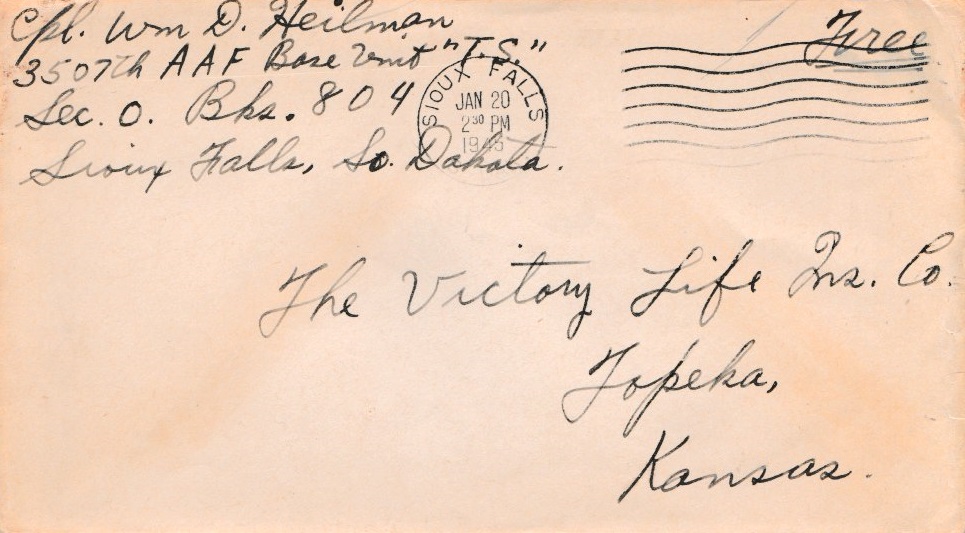 Cpl. Wm D. Heilman
3507th AAF Base Unit "T.S."
Sec. O. Bks. 804
Sioux Falls, So. Dakota.
SIOUX FALLS
JAN 20
2 30 PM
1945
Free
The Victory Life Ins. Co.
Topeka,
Kansas.